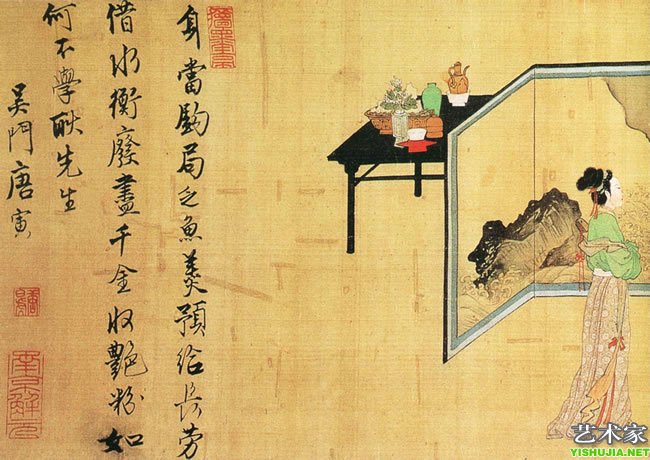 身當鈞局乏魚羹預給長勞
借水衡廢盡千金收艷粉如
何不學耿先生
吳門唐寅
南京解元
艺术家
YISHUJIA.NET